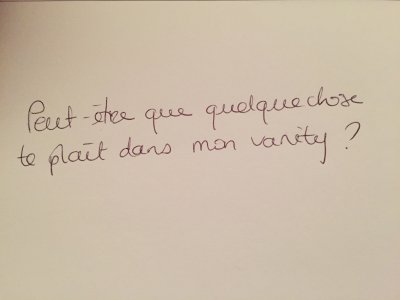 Peut-être que quelquechose
te plaît dans mon vanity ?